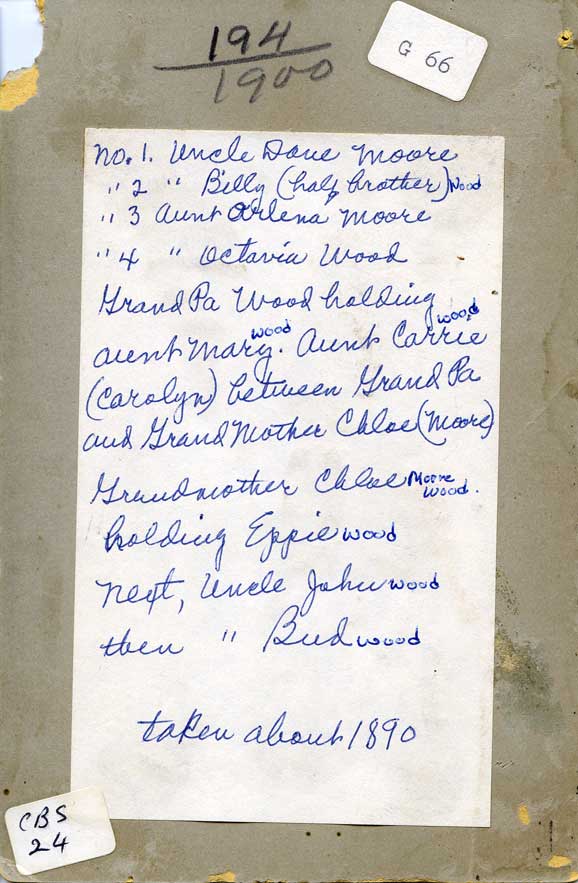 194
1900
G 66
No. 1. Uncle Dave Moore
" 2 " Billy (half brother) Wood
" 3 Aunt Orlena Moore
" 4 " Octavia Wood
Grand Pa Wood holding
aunt Mary wood. Aunt Carrie wood
(Carolyn) between Grand Pa
and Grand Mother Chloe (Moore)
Grandmother Chloe Moore Wood.
holding Eppie wood
next, Uncle John wood
then " Bud wood
taken about 1890
CBS
24